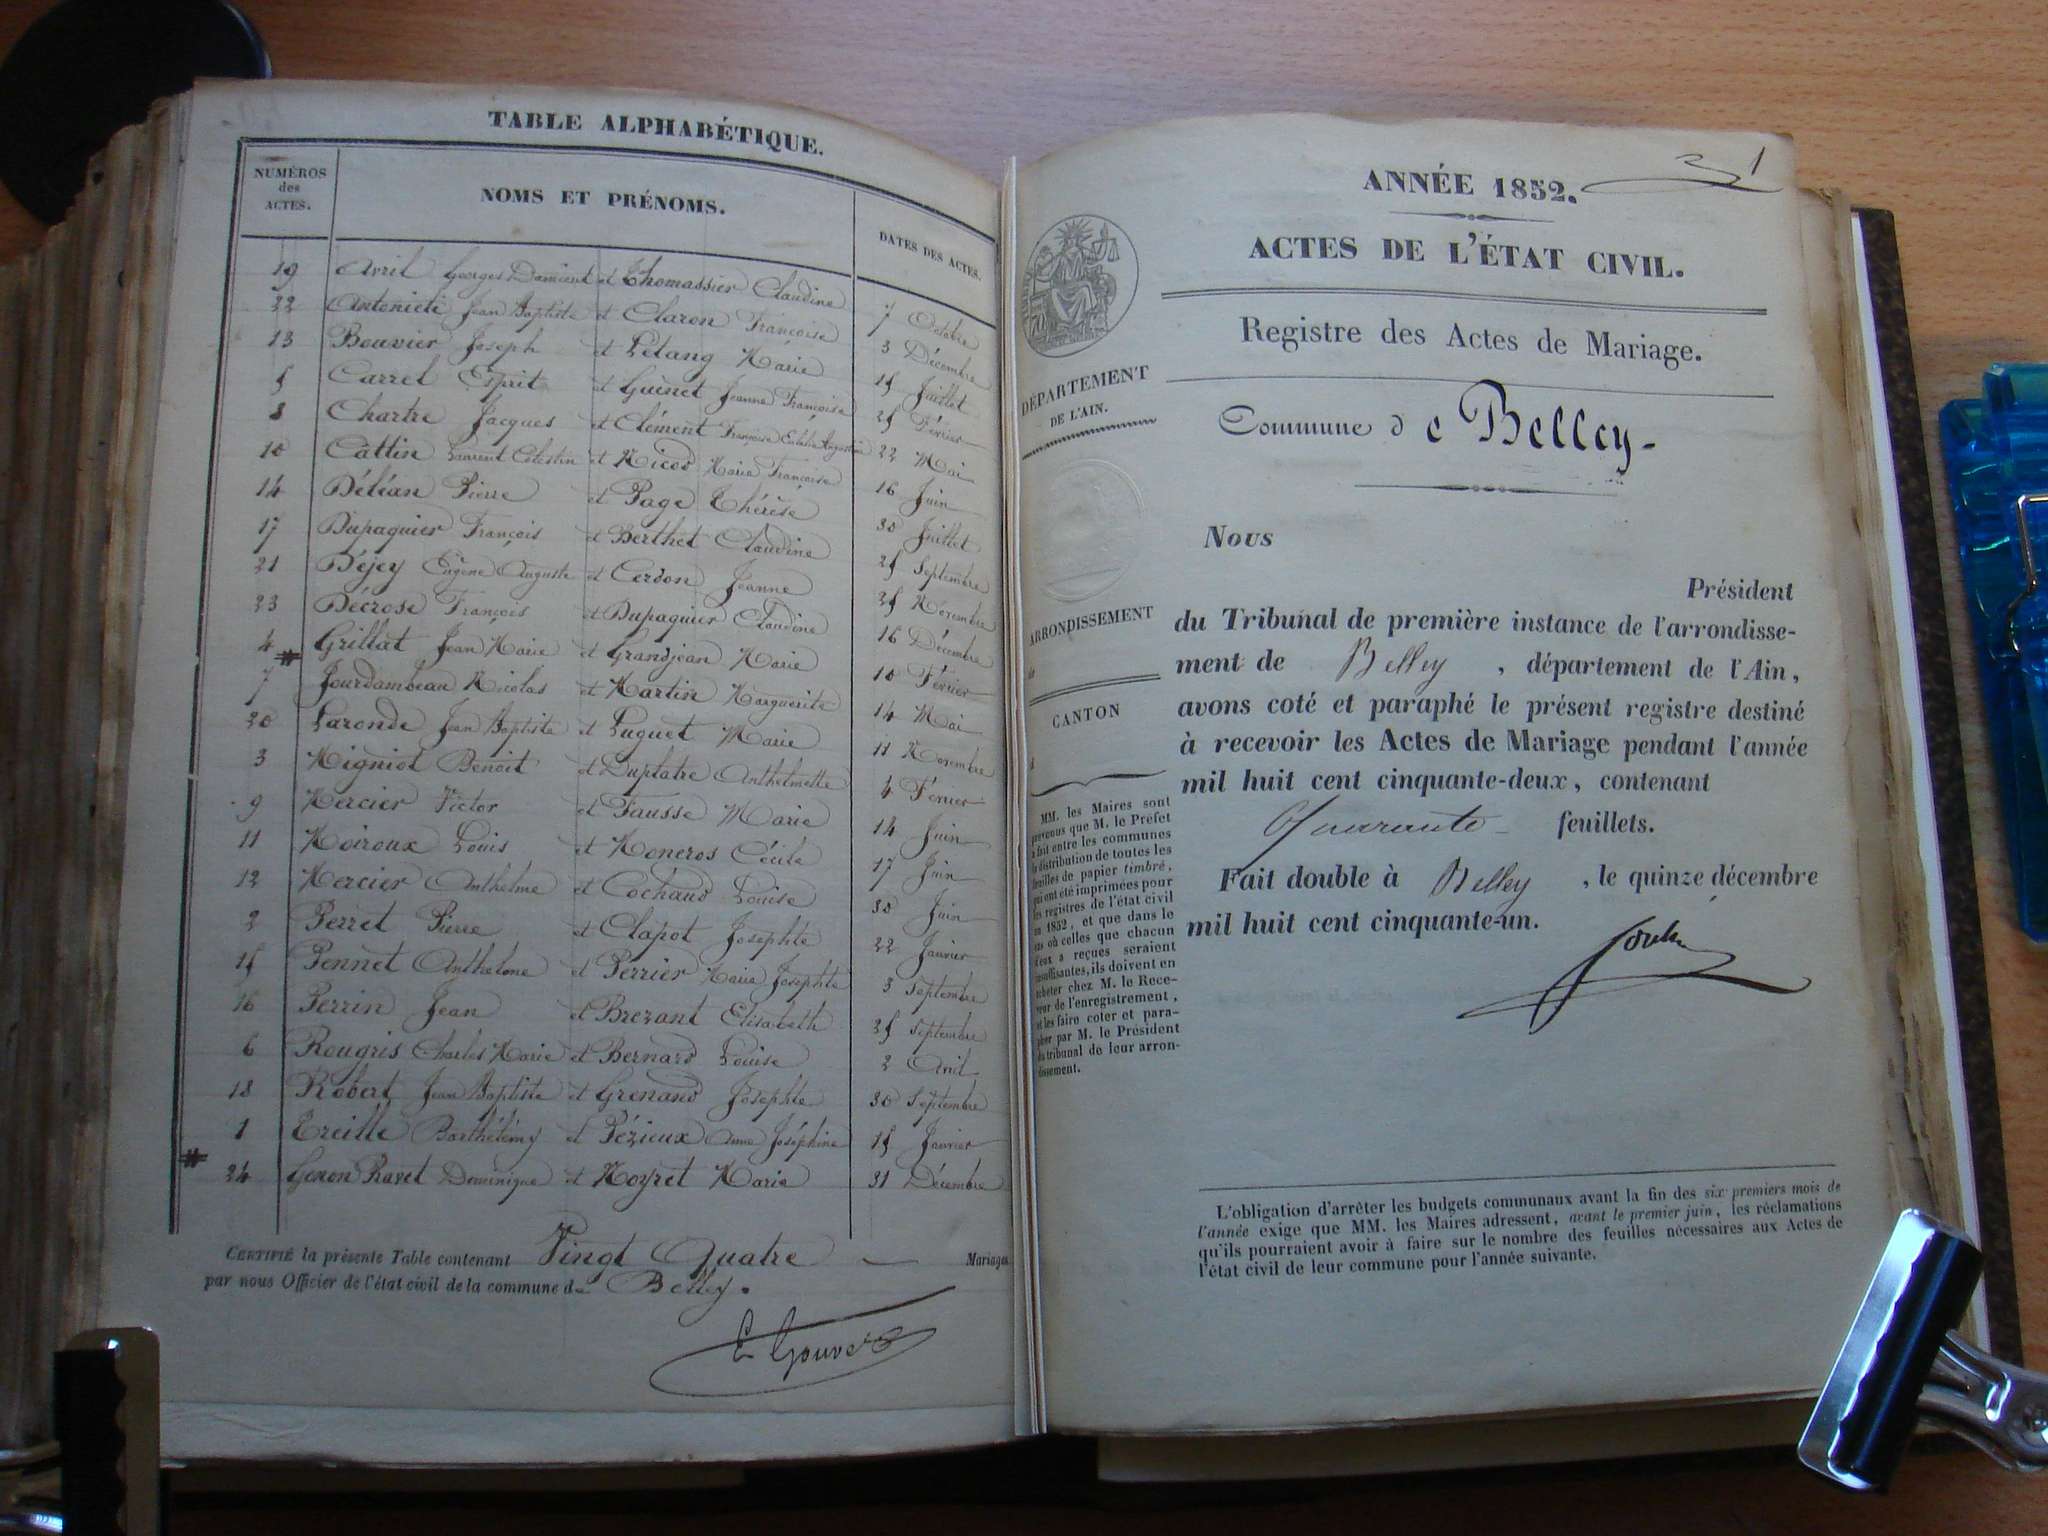 TABLE ALPHABÉTIQUE.
NUMÉROS
des
ACTES.
NOMS ET PRÉNOMS.
DATES DES ACTES.
19 Avril Georges Damient et Thomassier Claudine 7 Octobre
22 Antonieti Jean Baptiste et Claron Françoise 3 Décembre
13 Bouvier Joseph et Létang Marie 15 Juillet
5 Carrel Esprit et Guenet Jeanne Françoise 25 Février
8 Chartre Jacques et Clément Françoise Eulalie Augustine 22 Mai
10 Cattin Laurent Célestin et Nicod Marie Françoise 16 Juin
14 Délian Pierre et Page Thérèse 30 Juillet
17 Dupaquier François et Berthet Claudine 25 Septembre
21 Déjey Eugène Auguste et Cerdon Jeanne 25 Novembre
23 Décrose François et Dupaquier Claudine 16 Décembre
4 Grillat Jean Marie et Grandjean Marie 10 Février
7 Jourdambeau Nicolas et Martin Marguerite 14 Mai
20 Laronde Jean Baptiste et Luguet Marie 11 Novembre
3 Migniot Benoit et Duplatre Anthelmette 4 Février
9 Mercier Victor et Fausse Marie 14 Juin
11 Moiroux Louis et Moneros Cécile 17 Juin
12 Mercier Anthelme et Cochaud Louise 30 Juin
2 Perret Pierre et Clapot Josephte 22 Janvier
15 Pennet Anthelme et Perrier Marie Josephte 3 Septembre
16 Perrin Jean et Brezant Elisabeth 25 Septembre
6 Rougris Charles Marie et Bernard Louise 2 Avril
18 Robert Jean Baptiste et Grenaud Josephte 30 Septembre
1 Treille Barthélémy et Pézieux Anne Joséphine 15 Janvier
24 Genon Ravet Dominique et Moyret Marie 31 Décembre
CERTIFIÉ la présente Table contenant Vingt Quatre — Mariages
par nous Officier de l'état civil de la commune de Belley.
1
ANNÉE 1852.
ACTES DE L'ÉTAT CIVIL.
Registre des Actes de Mariage.
DÉPARTEMENT
DE L'AIN.
Commune de Belley -
ARRONDISSEMENT
CANTON
Nous
Président
du Tribunal de première instance de l'arrondisse-
ment de Belley , département de l'Ain,
avons coté et paraphé le présent registre destiné
à recevoir les Actes de Mariage pendant l'année
mil huit cent cinquante-deux, contenant
Quarante feuillets.
Fait double à Belley , le quinze décembre
mil huit cent cinquante-un.
MM. les Maires sont
prévenus que M. le Préfet
a fait entre les communes
la distribution de toutes les
feuilles de papier timbré,
qui ont été imprimées pour
les registres de l'état civil
en 1852, et que dans le
cas où celles que chacun
d'eux a reçues seraient
insuffisantes, ils doivent en
acheter chez M. le Rece-
veur de l'enregistrement,
et les faire coter et para-
pher par M. le Président
du tribunal de leur arron-
dissement.
L'obligation d'arrêter les budgets communaux avant la fin des six premiers mois de
l'année exige que MM. les Maires adressent, avant le premier juin, les réclamations
qu'ils pourraient avoir à faire sur le nombre des feuilles nécessaires aux Actes de
l'état civil de leur commune pour l'année suivante.